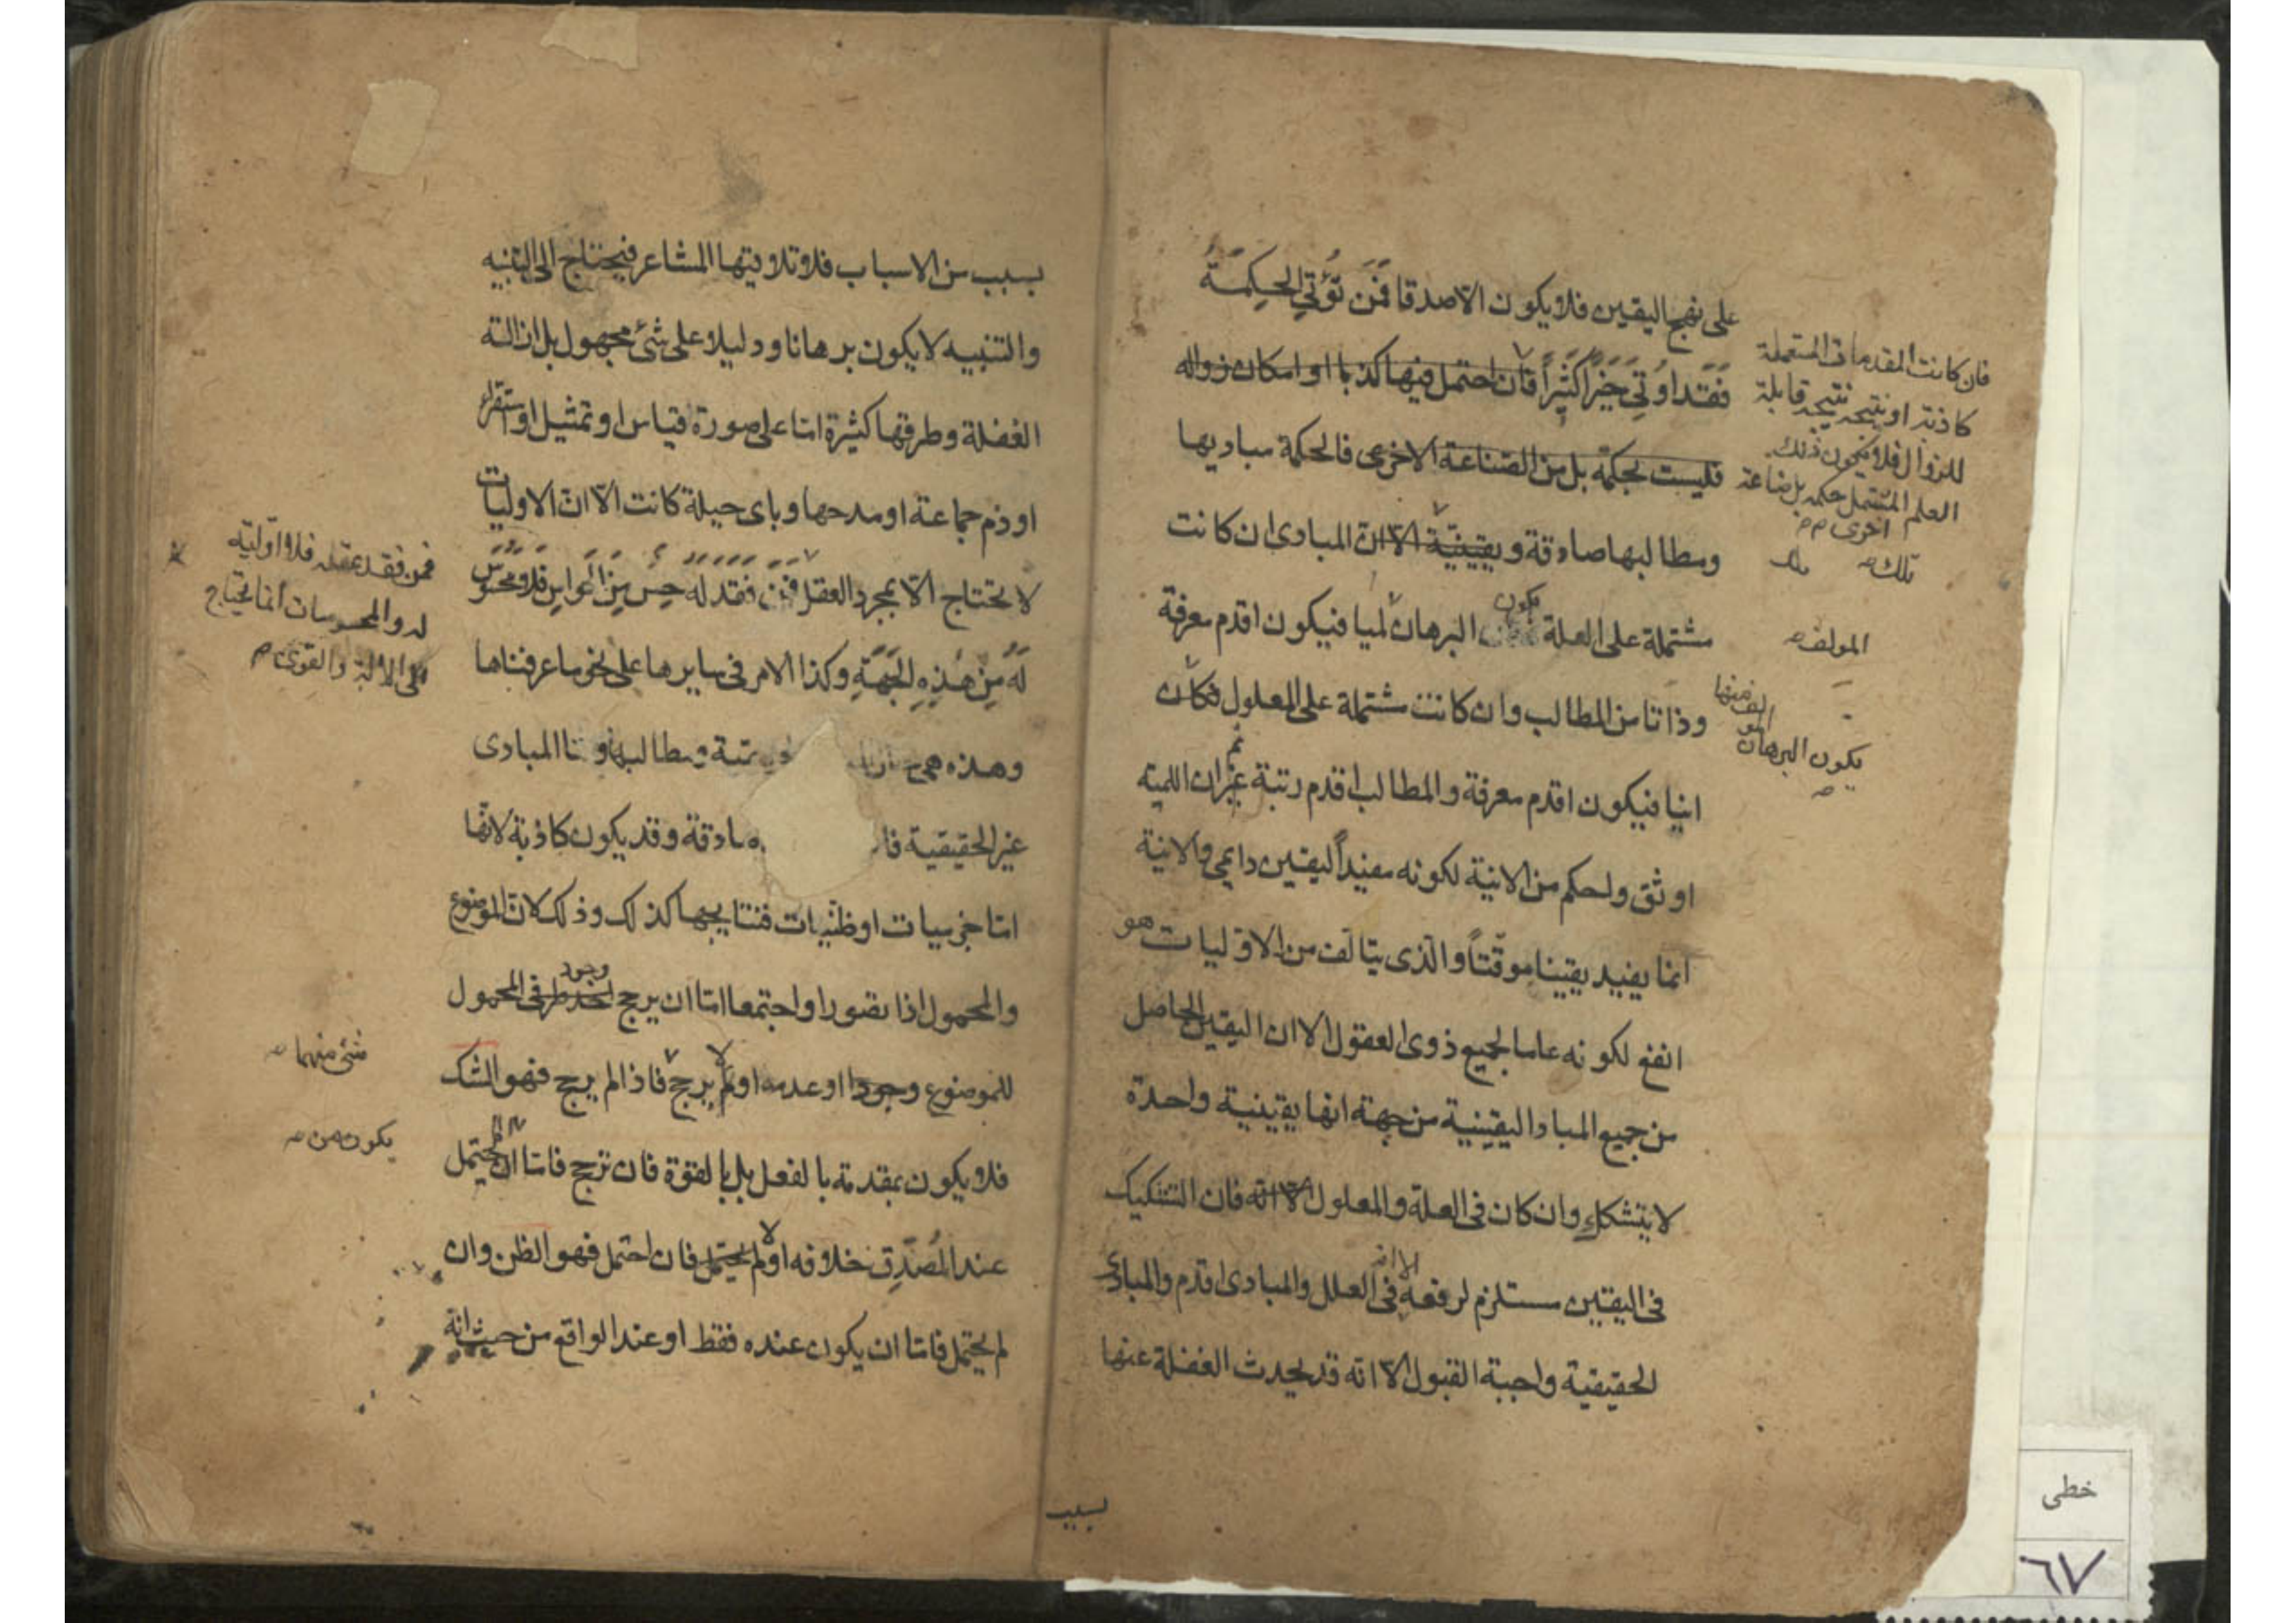 على نهج اليقين فلا يكون الا صدقا فمن تؤتي الحكمة
فقد اوتي خيرا كثيرا فان احتمل فيها كذبا او امكان زواله
فليست بحكمة بل من الصناعة الاخرى فالحكمة مباديها
ومطالبها صادقة و يقينية الا ان المبادى ان كانت
مشتملة على العلة يكون البرهان لميا فيكون اقدم معرفة
وذاتا من المطالب وان كانت مشتملة على المعلول فكان
انيا فيكون اقدم معرفة والمطالب اقدم رتبة ثم غير ان اللمية
اوثق واحكم من الانية لكونه مفيدا ليقين دايمي والانية
انما يفيد يقينا موقتا والذى يتالف من الاوليات هو
انفع لكونه عاما لجميع ذوى العقول الا ان اليقين الحاصل
من جميع المباد اليقينية من جهة انها يقينية واحدة
لا يتشكك وان كان فى العلة والمعلول الا انه فان التشكيك
فى اليقين مستلزم لرفعه الا انه فى العلل والمبادى اقدم والمبادى
الحقيقية واجبة القبول الا انه قد يحدث الغفلة عنها
بسبب
فان كانت المقدمات المستعملة
كاذبة او نتيجة نتيجة قابلة
للزوال فلا يكون ذلك
العلم المشتمل حكمة بل صناعة
اخرى
تلك
المولف
المولف منها
يكون البرهان
بسبب من الاسباب فلا تلاويتها المشاعر فيحتاج الى التنبيه
والتنبيه لا يكون برهانا ودليلا على شئ مجهول بل ازالة
الغفلة وطرقها كثيرة اما على صورة قياس او تمثيل او استقراء
او ذم جماعة او مدحها وباى حيلة كانت الا ان الاوليات
لا يحتاج الا بمجرد العقل فمن فقد له حس من الحواس فلا محسوس
له من هذه الجهة وكذا الامر فى سايرها على نحو ما عرفناها
وهذه هى ومطالبها واما المبادى
غير الحقيقية صادقة وقد يكون كاذبة لانها
اما جزييات او ظنيات فنتايجها كذلك وذلك لان الموضوع
والمحمول اذا تصورا واجتمعا اما ان يرجح احد طرفى وجود المحمول
للموضوع وجودا او عدمه او لا لم يرجح فاذا لم يرجح فهو الشك
فلا يكون بمقدمة بالفعل بل بالقوة فان ترجح فاما ان يحتمل
عند المصدق خلافه او لا لم يحتمل فان احتمل فهو الظن وان
لم يحتمل فاما ان يكون عنده فقط او عند الواقع من حيث انه
فمن فقد عقله فلا اولية
له والمحسوسات انما يحتاج
الى الالة والقوى
شئ منهما
يكون من
خطى
٦٧